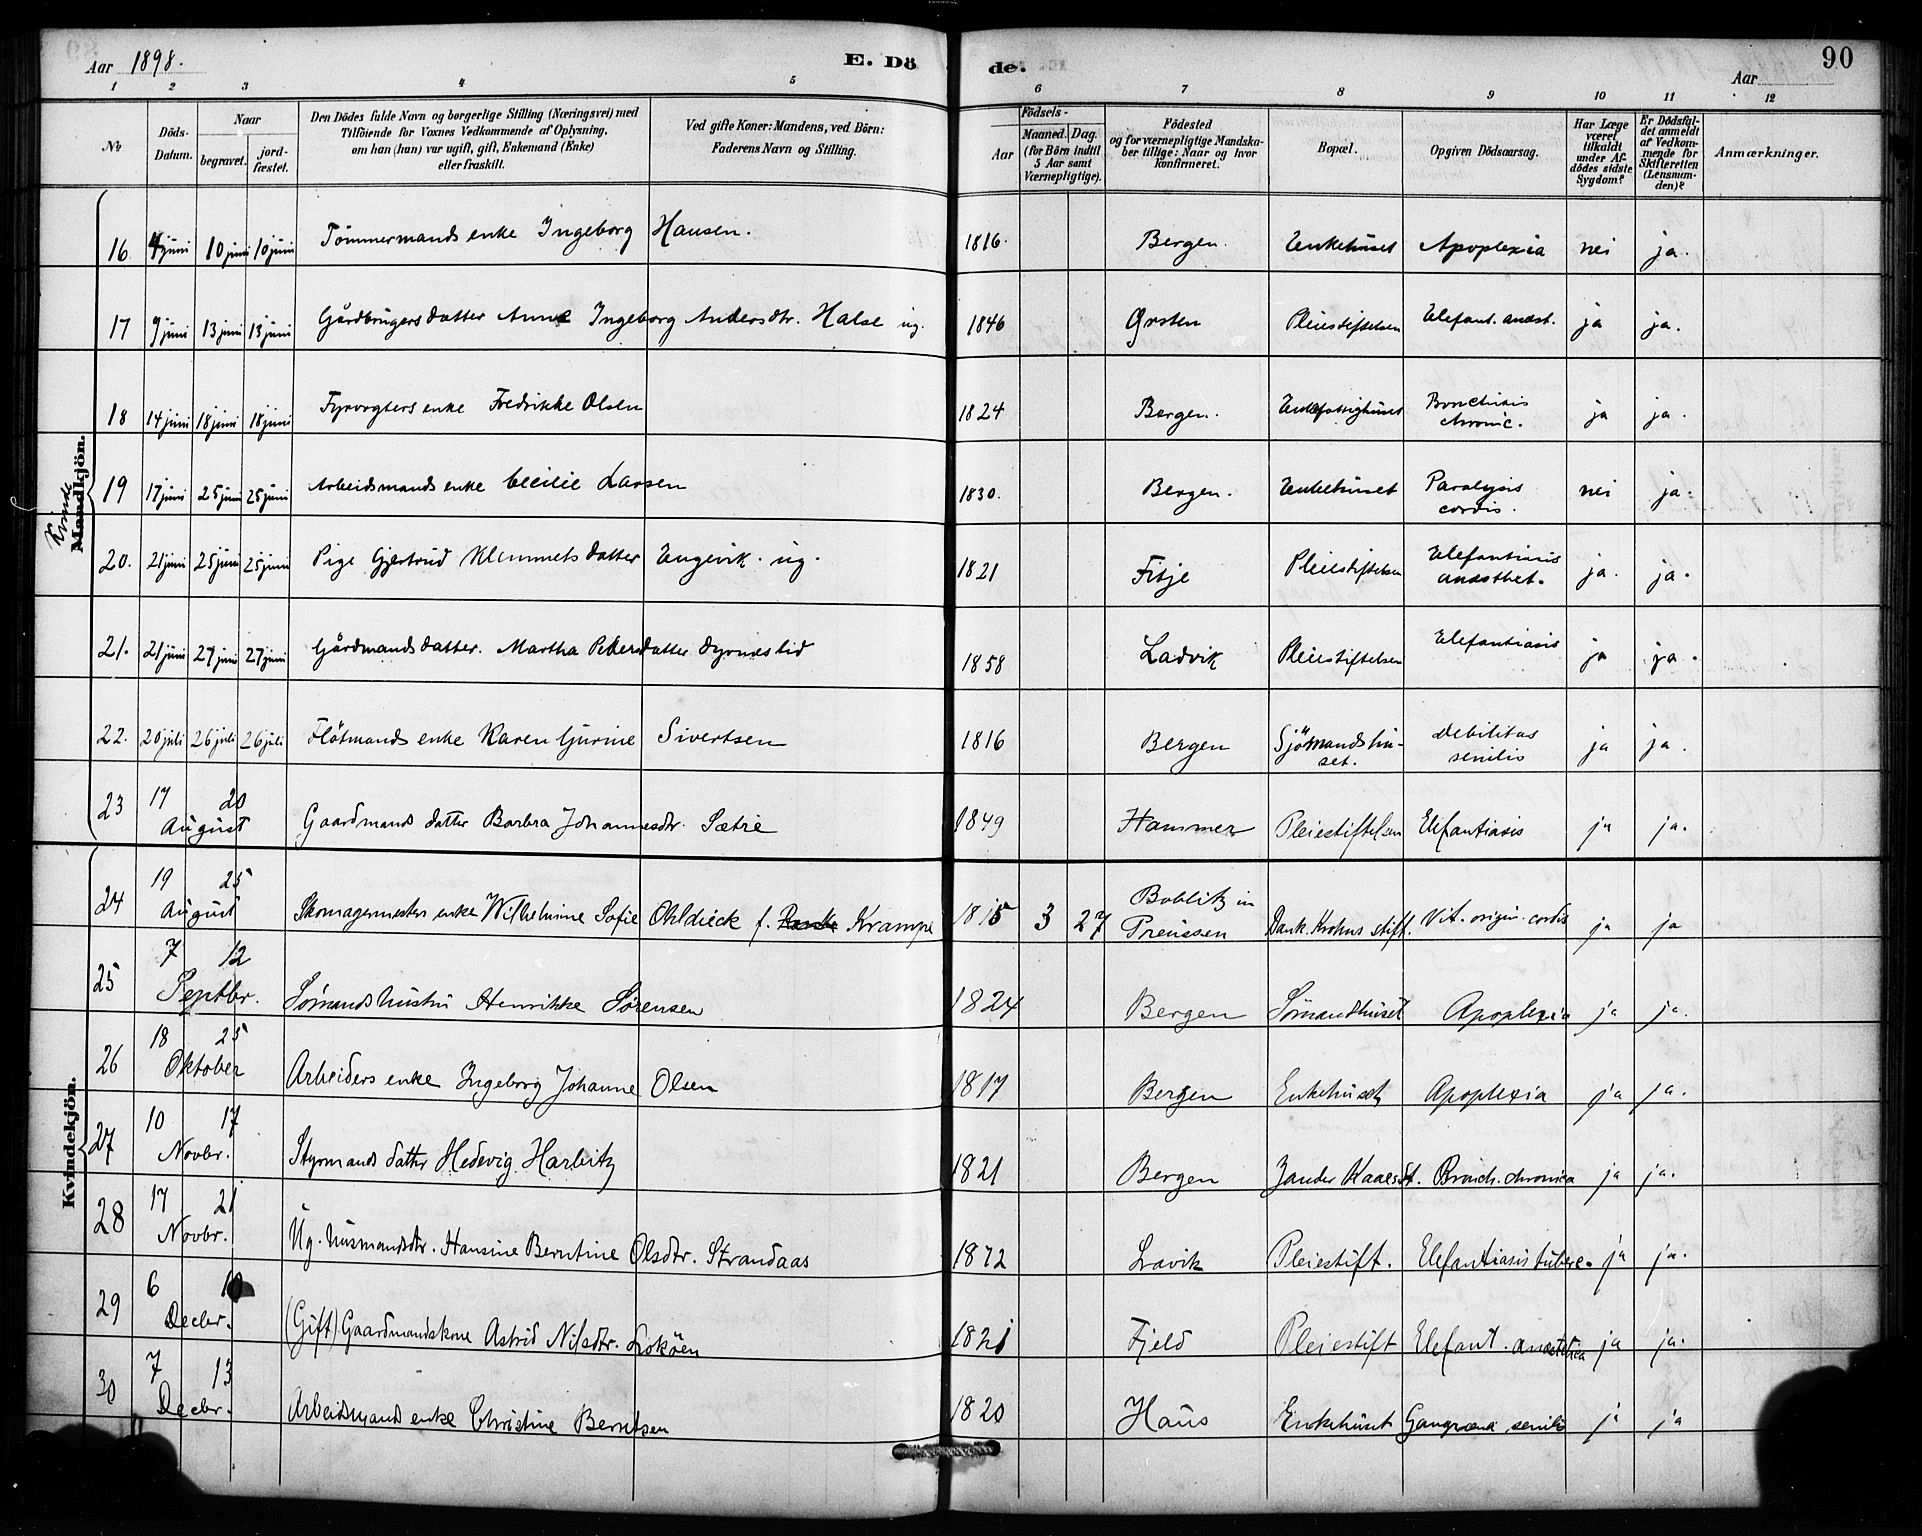 Aar 1898.
E. Dö
de.
Aar
90
1 2 3 4 5 6 7 8 9 10 11 12
No
Döds-Datum.
Naar
begravet.
jord-fæstet.
Den Dödes fulde Navn og borgerlige Stilling (Næringsvei) med
Tilföiende for Voxnes Vedkommende af Oplysning,
om han (hun) var ugift, gift, Enkemand (Enke)
eller fraskilt.
Ved gifte Koner: Mandens, ved Börn:
Faderens Navn og Stilling.
Födsels-
Aar
Maaned. Dag.
(for Börn indtil
5 Aar samt
Værnepligtige).
Födested
og for værnepligtige Mandska-
ber tillige: Naar og hvor
konfirmeret.
Bopæl.
Opgiven Dödsaarsag.
Har Læge
været
tilkaldt
under Af-
dödes sidste
Sygdom?
Er Dödsfal-
det anmeldt
af Vedkom-
mende for
Skifteretten
(Lensman-
den)?
Anmærkninger.
Kvinde
Mandkjön.
16. 4 juni 10 juni 10 juni Tömmermands enke Ingeborg Hansen. 1816. Bergen. Enkehuset Apoplexia nei ja.
17 9 juni 13 juni 13 juni Gårdbrugers datter Anne Ingeborg Andersdtr. Halse ug. 1846 Ørsten Pleiestiftelsen Elefant. anæst. ja ja.
18 14 juni 18 juni 18 juni Fyrvogters enke Fredrikke Olsen 1824 Bergen. Enkefattighuset Bronchitis
chronic. ja ja.
19 17 juni 25 juni 25 juni Arbeidsmands enke Cecilie Larsen 1830. Bergen. Enkehuset Paralysis
cordis. nei ja.
20. 21 juni 25 juni 25 juni Pige Gjertrud Klemmetsdatter Engevik. ug. 1821 Fitje Pleiestiftelsen Elefantiasis
anæsthet. ja. ja.
21. 21 juni 27 juni 27 juni Gårdmands datter. Martha Petersdatter Dyrneslid 1858 Ladvik Pleiestiftelsen Elefantiasis ja ja.
22. 20 juli 26 juli 26 juli Flötmands enke Karen Gurine Sivertsen 1816 Bergen Sjömandshu-
set. Debilitas
senilis ja ja.
23 17 20
August Gaardmands datter Barbra Johannesdtr. Sætre 1849 Hammer Pleiestiftelsen Elefantiasis ja ja.
Kvindekjön.
24 19 25
August Skomagermesters enke Wilhelmine Sofie Ohldieck f. Krampe 1815 3 27 Boblitz in
Preussen Dank. Krohns stift. Vit. origin. cordis ja ja
25 7 12
Septbr. Sömandshustru Henrikke Sörensen 1824 Bergen Sömandhuset Apoplexia ja ja.
26 18 25
Oktober Arbeiders enke Ingeborg Johanne Olsen 1817 Bergen Enkehuset Apoplexia ja ja.
27 10 17
Novbr. Styrmands datter Hedevig Harbitz 1821 Bergen Zander Kaaes St. Bronch. chronica ja ja.
28 17 21
Novbr. Ug. husmandsdtr. Hansine Berntine Olsdtr. Strandaas 1872 Lavik Pleiestift. Elefantiasis tuberc. ja ja.
29 6 10
Decbr. (Gift) Gaardmandskone Astrid Nilsdtr. Lokøen 1821 Fjeld Pleiestift Elefant. anæstetica ja ja.
30 7 13
Decbr. Arbeidsmands enke Christine Berntsen 1820 Haus Enkehuset Gangræna senilis ja ja